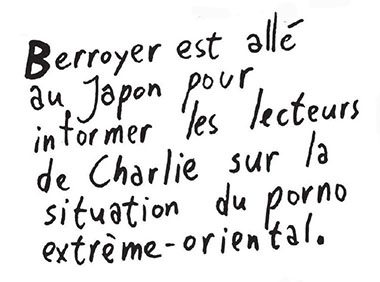 Berroyer est allé
au Japon pour
informer les lecteurs
de Charlie sur la
situation du porno
extrême-oriental.